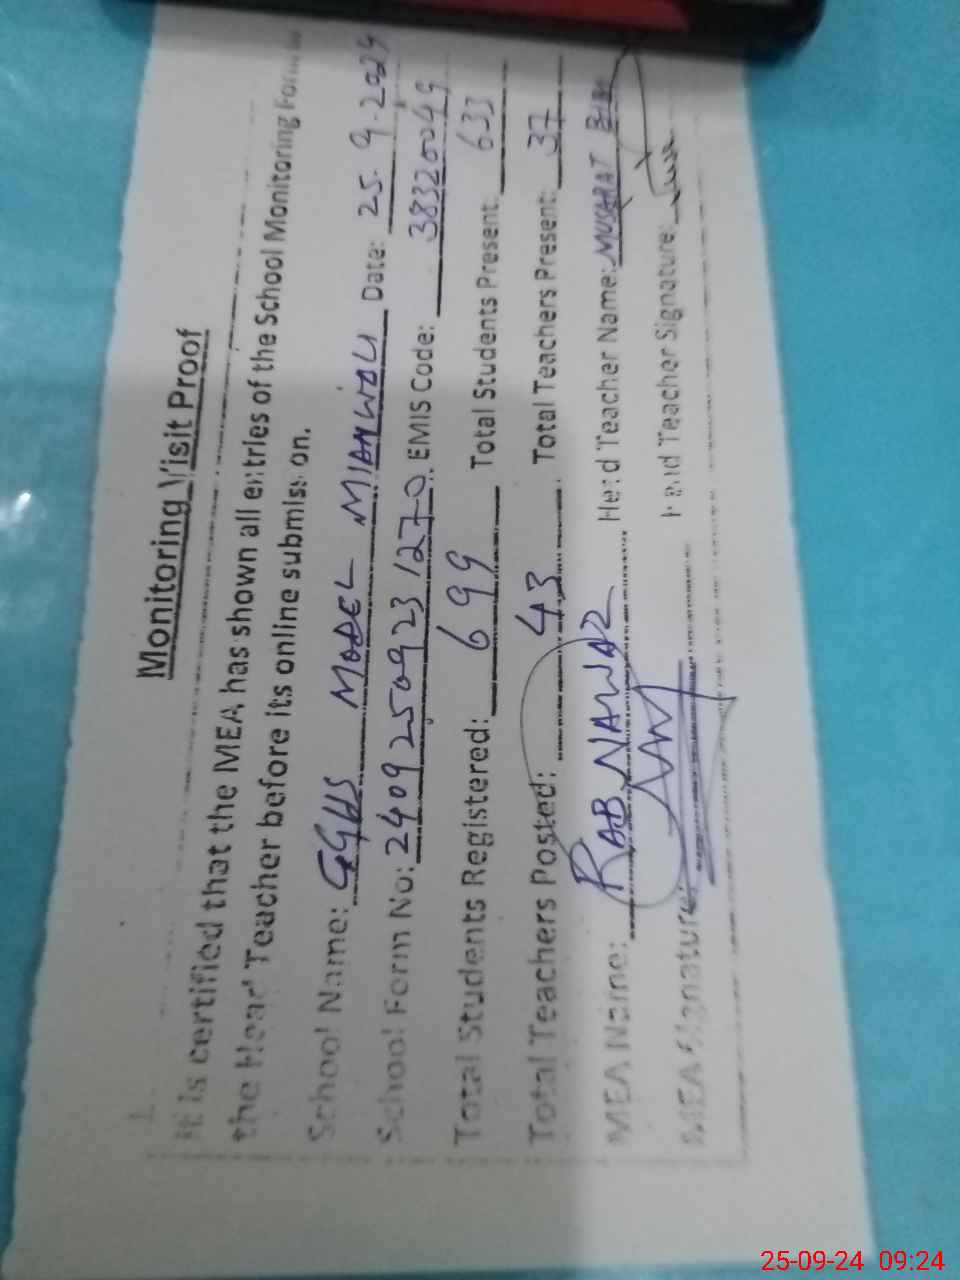 Monitoring Visit Proof
It is certified that the MEA has shown all entries of the School Monitoring Form to
the Head Teacher before its online submission.
School Name: GGHS MODEL MIANWALI Date: 25.9.2024
School Form No: 2409250923 1270 EMIS Code: 38320049
Total Students Registered: 699 Total Students Present: 633
Total Teachers Posted: 43 Total Teachers Present: 37
MEA Name: RAB NAWAZ Head Teacher Name: MUSARAT BIBI
MEA Signature: Head Teacher Signature:
25-09-24 09:24